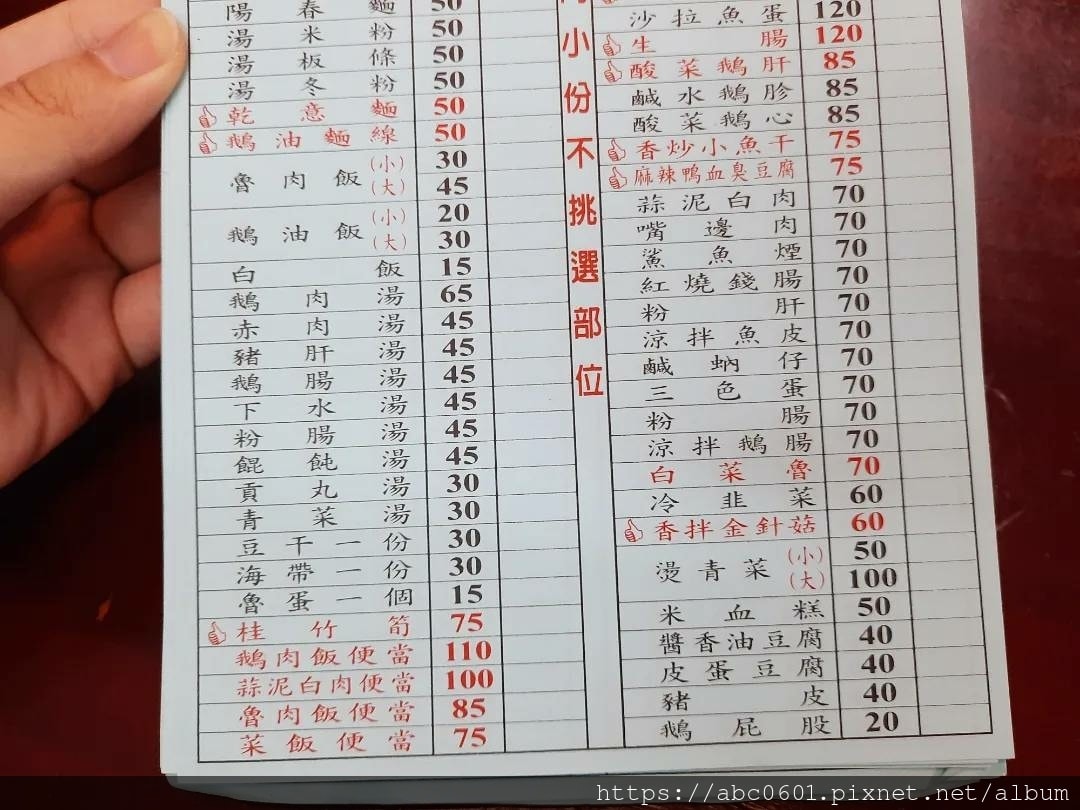 陽春麵 50
湯米粉 50
湯板條 50
湯冬粉 50
乾意麵 50
鵝油麵線 50
魯肉飯 (小) 30
(大) 45
鵝油飯 (小) 20
(大) 30
白飯 15
鵝肉湯 65
赤肉湯 45
豬肝湯 45
鵝腸湯 45
下水湯 45
粉腸湯 45
餛飩湯 45
貢丸湯 30
青菜湯 30
豆干一份 30
海帶一份 30
魯蛋一個 15
桂竹筍 75
鵝肉飯便當 110
蒜泥白肉便當 100
魯肉飯便當 85
菜飯便當 75
小份不挑選部位
沙拉魚蛋 120
生腸 120
酸菜鵝肝 85
鹹水鵝胗 85
酸菜鵝心 85
香炒小魚干 75
麻辣鴨血臭豆腐 75
蒜泥白肉 70
嘴邊肉 70
鯊魚煙 70
紅燒錢腸 70
粉肝 70
涼拌魚皮 70
鹹蚋仔 70
三色蛋 70
粉腸 70
涼拌鵝腸 70
白菜魯 70
冷韭菜 60
香拌金針菇 60
燙青菜 (小) 50
(大) 100
米血糕 50
醬香油豆腐 40
皮蛋豆腐 40
豬皮 40
鵝屁股 20
https://abc0601.pixnet.net/album